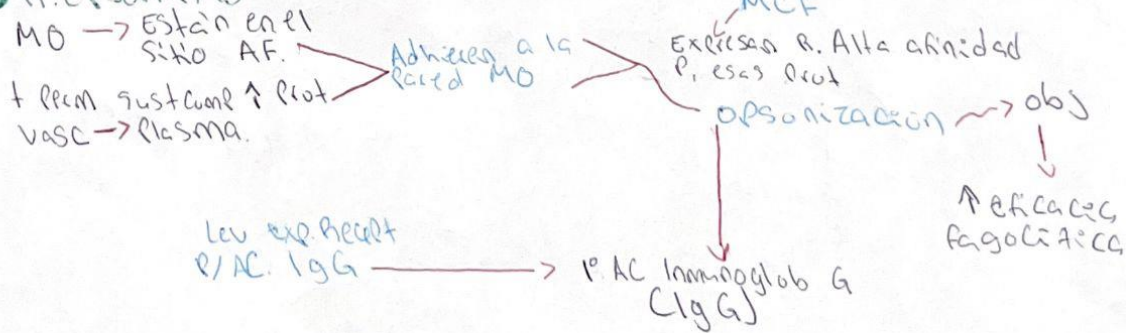 MO → Están en el
sitio AF.
+ Perm sust comp ↑ Prot
vasc → Plasma.
Adhieren a la
Pared MO
MCF
Expresan R. Alta afinidad
P, esas Prot
Opsonización → obj
↑ eficacia
fagocítica
Leu exp. Recept
P/ AC. IgG → 1º AC Inmunoglob G
(IgG)